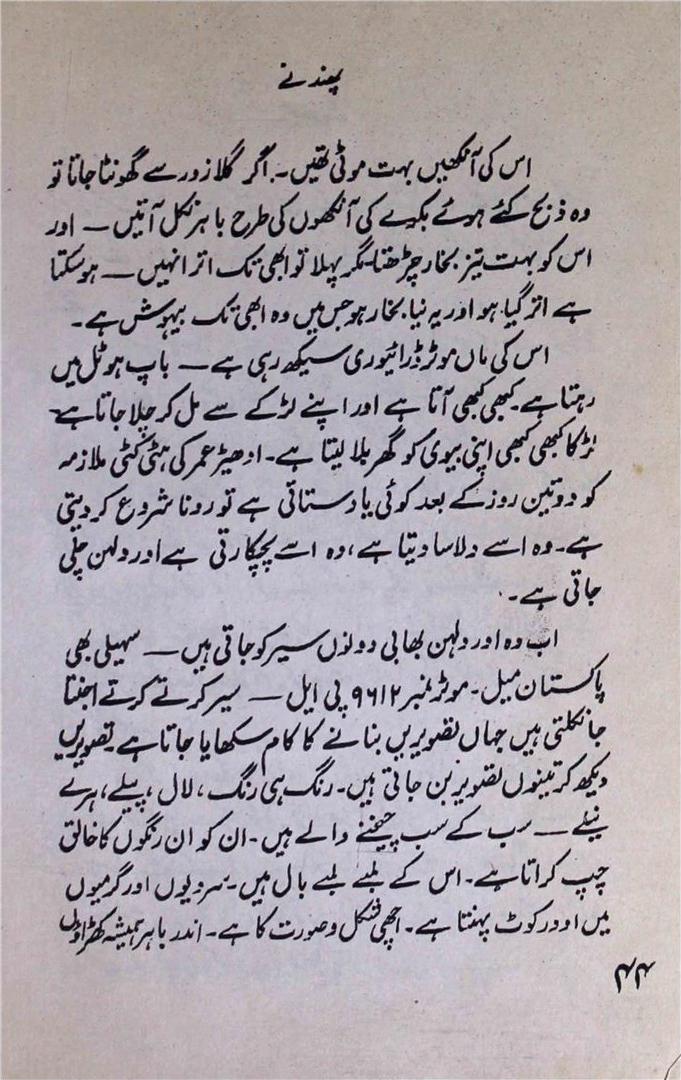 پھندنے
اس کی آنکھیں بہت موٹی تھیں۔ اگر گلا زور سے گھونٹا جاتا تو
وہ ذبح کئے ہوئے بکرے کی آنکھوں کی طرح باہر نکل آتیں — اور
اس کو بہت تیز بخار چڑھتا۔ مگر پہلا تو ابھی تک اترا نہیں — ہو سکتا
ہے اتر گیا ہو اور یہ نیا بخار ہو جس میں وہ ابھی تک بیہوش ہے۔
اس کی ماں موٹر ڈرائیوری سیکھ رہی ہے — باپ ہوٹل میں
رہتا ہے۔ کبھی کبھی آتا ہے اور اپنے لڑکے سے مل کر چلا جاتا ہے۔
لڑکا کبھی کبھی اپنی بیوی کو گھر بلا لیتا ہے۔ ادھیڑ عمر کی ہٹی کٹی ملازمہ
کو دو تین روز کے بعد کوئی یاد ستاتی ہے تو رونا شروع کر دیتی
ہے۔ وہ اسے دلاسا دیتا ہے، وہ اسے پچکارتی ہے اور دلہن چلی
جاتی ہے۔
اب وہ اور دلہن بھابی دونوں سیر کو جاتی ہیں — سہیلی بھی
پاکستان میل۔ موٹر نمبر ۹۶۱۲ پی ایل — سیر کرتے کرتے اجنتا
جا نکلتی ہیں جہاں تصویریں بنانے کا کام سکھایا جاتا ہے۔ تصویریں
دیکھ کر تینوں تصویر بن جاتی ہیں۔ رنگ ہی رنگ، لال، پیلے، ہرے
نیلے — سب کے سب چیخنے والے ہیں۔ ان کو ان رنگوں کا خالق
چپ کراتا ہے۔ اس کے لمبے لمبے بال ہیں۔ سردیوں اور گرمیوں
میں اوور کوٹ پہنتا ہے۔ اچھی شکل و صورت کا ہے۔ اندر باہر ہمیشہ کھڑاؤں
۴۴